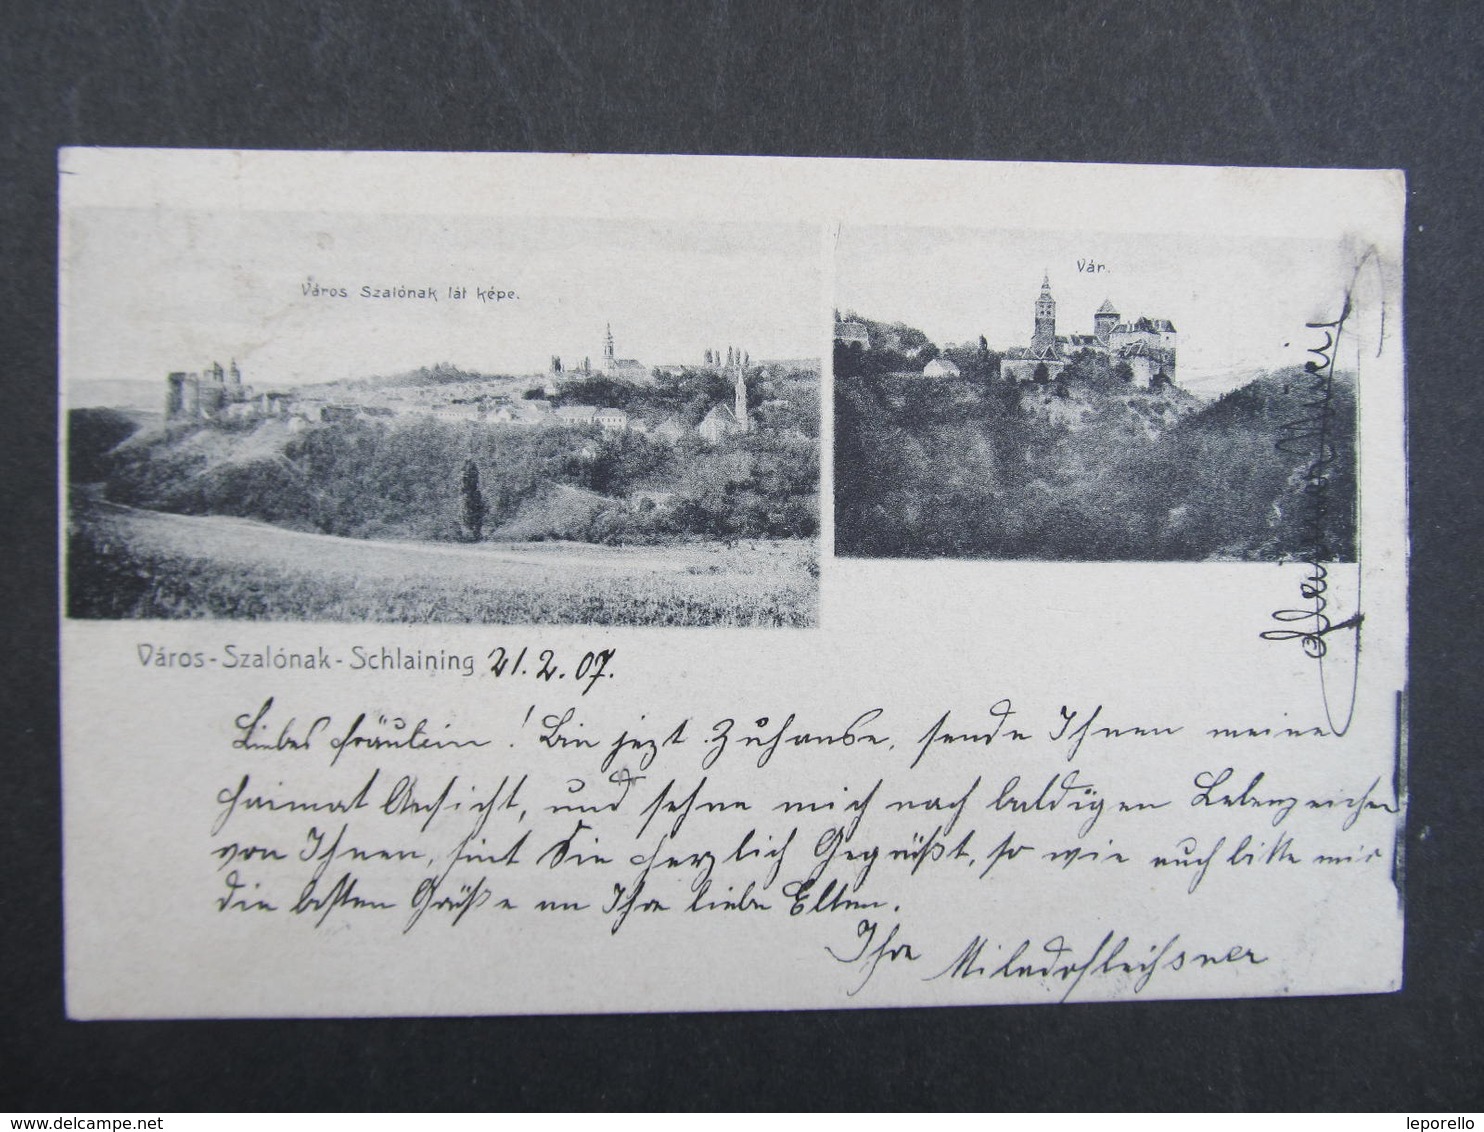 Város Szalónak lát képe.
Vár.
Város-Szalónak-Schlaining 21.2.07.
Liebes Fräulein! Bin jezt Zuhause, sende Ihnen meine
Heimat Ansicht, und sehne mich nach baldigen Lebenzeichen
von Ihnen, seint Sie Herzlich Gegrüßt, so wie auch bitte mir
die besten Grüße an Ihre liebe Eltern.
Ihre
www.delcampe.net
leporello